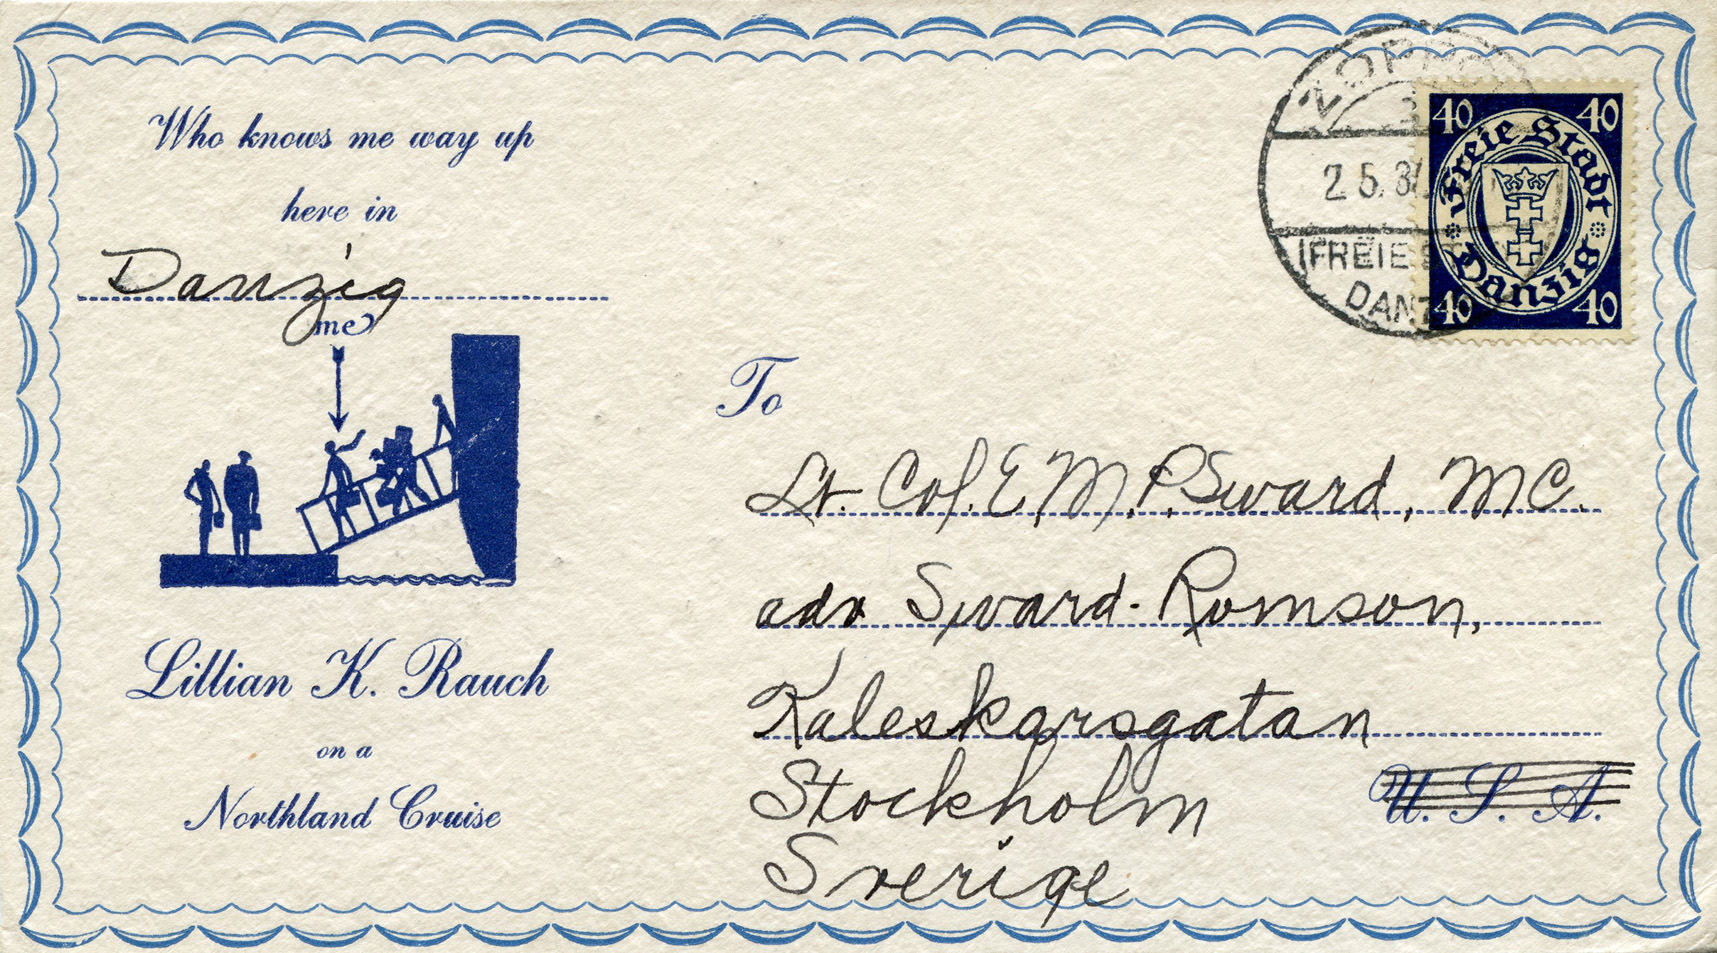 Who knows me way up
here in
Danzig
me
Lillian K. Rauch
on a
Northland Cruise
ZOPPOT
2.5.3
(FREIE ST
DANZ
40 40
Freie Stadt
Danzig
40 40
To
Lt. Col. E.M.P. Sward, MC.
adr Sward-Romson,
Kaleskarsgatan
Stockholm
U. S. A.
Sverige